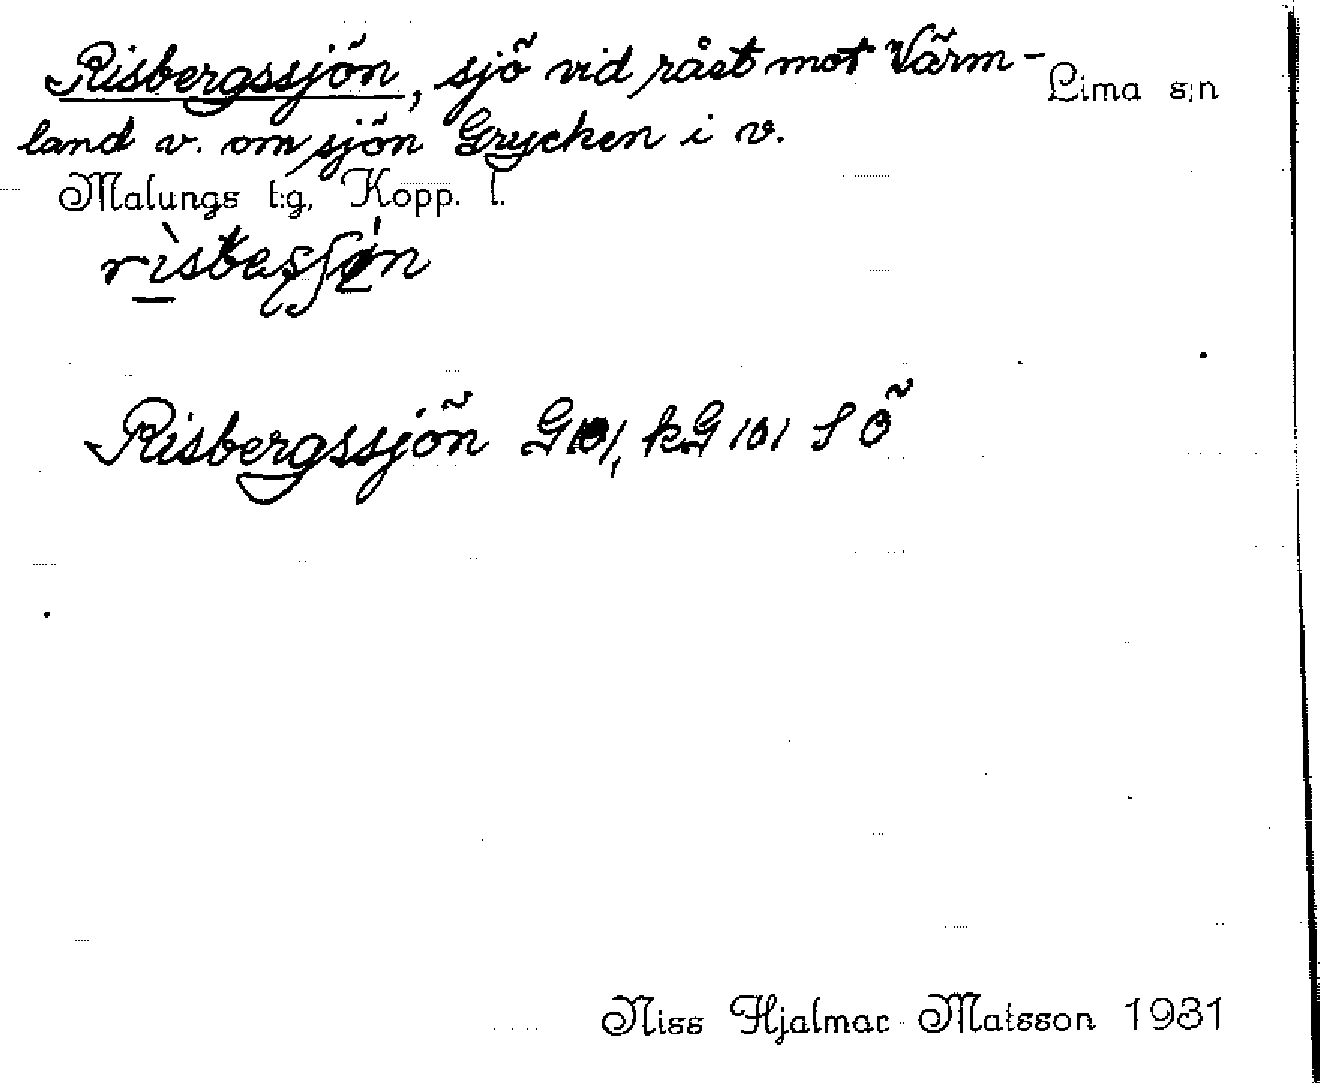 Risbergssjön, sjö vid råst mot Värm-
Lima s:n
land v. om sjön Grycken i v.
Malungs t:g, Kopp. l.
Risbergssjön G101, kG 101 S Ö
Niss Hjalmar Matsson 1931